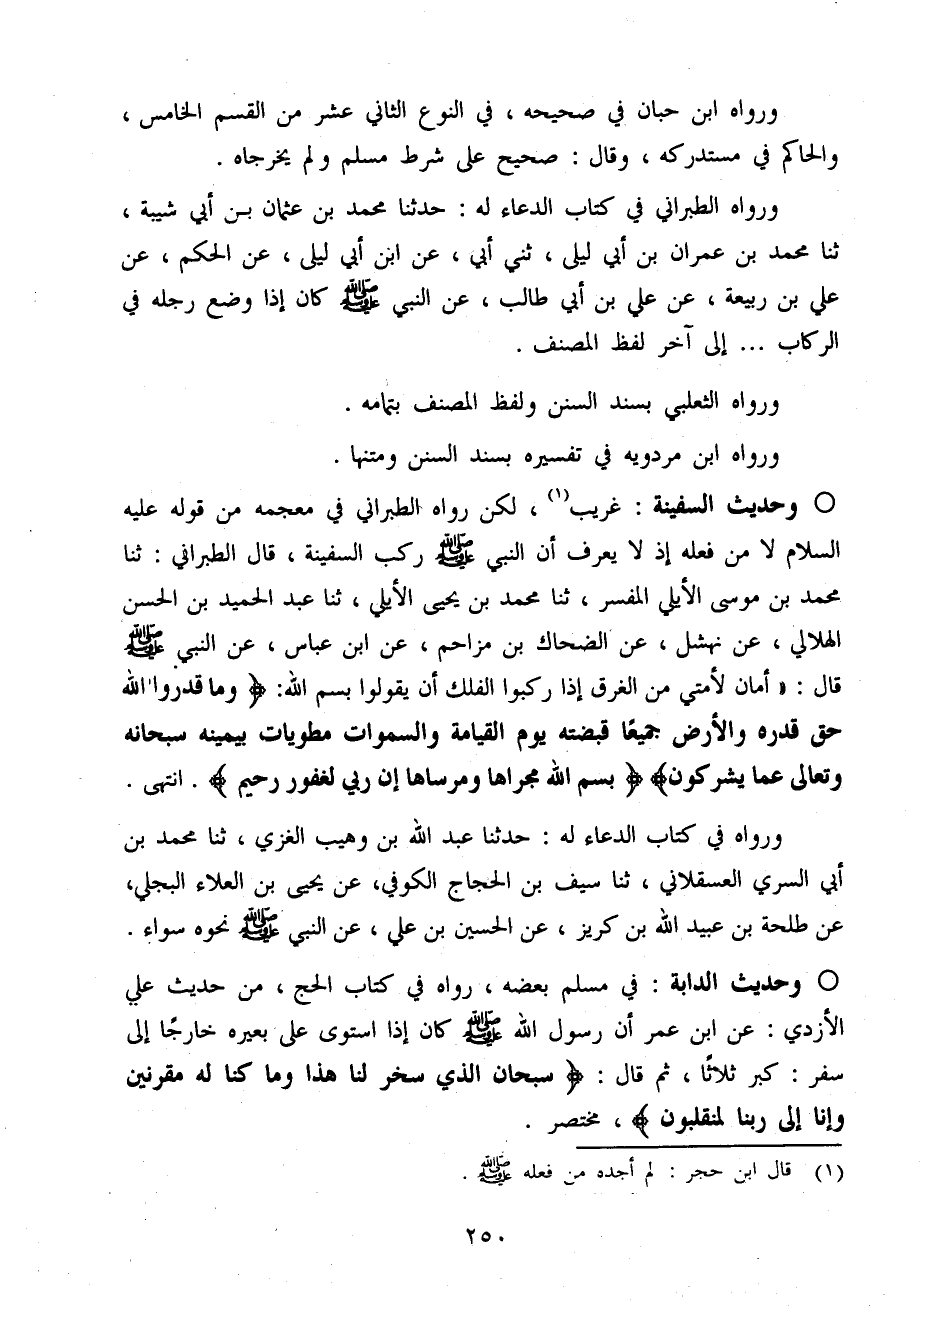 ورواه ابن حبان في صحيحه ، في النوع الثاني عشر من القسم الخامس ،
والحاكم في مستدركه ، وقال : صحيح على شرط مسلم ولم يخرجاه .
ورواه الطبراني في كتاب الدعاء له : حدثنا محمد بن عثمان بـن أبي شيبة ،
ثنا محمد بن عمران بن أبي ليلى ، ثني أبي ، عن ابن أبي ليلى ، عن الحكم ، عن
علي بن ربيعة ، عن علي بن أبي طالب ، عن النبي ﷺ كان إذا وضع رجله في
الركاب ... إلى آخر لفظ المصنف .
ورواه الثعلبي بسند السنن ولفظ المصنف بتمامه .
ورواه ابن مردويه في تفسيره بسند السنن ومتنها .
○ وحديث السفينة : غريب(١) ، لكن رواه الطبراني في معجمه من قوله عليه
السلام لا من فعله إذ لا يعرف أن النبي ﷺ ركب السفينة ، قال الطبراني : ثنا
محمد بن موسى الأيلي المفسر ، ثنا محمد بن يحيى الأيلي ، ثنا عبد الحميد بن الحسن
الهلالي ، عن نهشل ، عن الضحاك بن مزاحم ، عن ابن عباس ، عن النبي ﷺ
قال : « أمان لأمتي من الغرق إذا ركبوا الفلك أن يقولوا بسم الله: ﴿ وما قدروا الله
حق قدره والأرض جميعًا قبضته يوم القيامة والسموات مطويات بيمينه سبحانه
وتعالى عما يشركون﴾ ﴿ بسم الله مجراها ومرساها إن ربي لغفور رحيم ﴾ . انتهى .
ورواه في كتاب الدعاء له : حدثنا عبد الله بن وهيب الغزي ، ثنا محمد بن
أبي السري العسقلاني ، ثنا سيف بن الحجاج الكوفي، عن يحيى بن العلاء البجلي،
عن طلحة بن عبيد الله بن كريز ، عن الحسين بن علي ، عن النبي ﷺ نحوه سواء .
○ وحديث الدابة : في مسلم بعضه ، رواه في كتاب الحج ، من حديث علي
الأزدي : عن ابن عمر أن رسول الله ﷺ كان إذا استوى على بعيره خارجًا إلى
سفر : كبر ثلاثًا ، ثم قال : ﴿ سبحان الذي سخر لنا هذا وما كنا له مقرنين
وإنا إلى ربنا لمنقلبون ﴾ ، مختصر .
(١) قال ابن حجر : لم أجده من فعله ﷺ .
٢٥٠